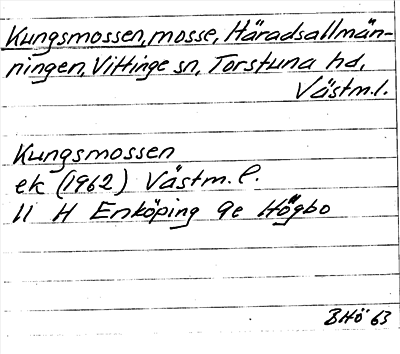 Kungsmossen, mosse, Häradsallmän-
ningen, Vittinge sn, Torstuna hd,
Västm.l.
Kungsmossen
ek (1962) Västm. l.
11 H Enköping 9e Högbo
BHö 63